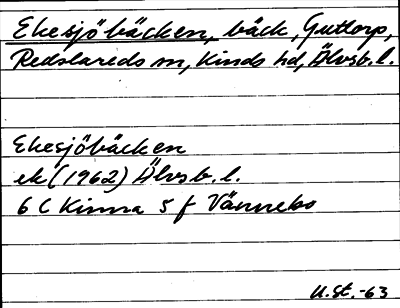 Ekesjöbäcken, bäck, Guttorp,
Redslareds sn, Kinds hd, Älvsb. l.
Ekesjöbäcken
ek (1962) Älvsb. l.
6 C Kinna 5 f Vännebo
U.St. -63